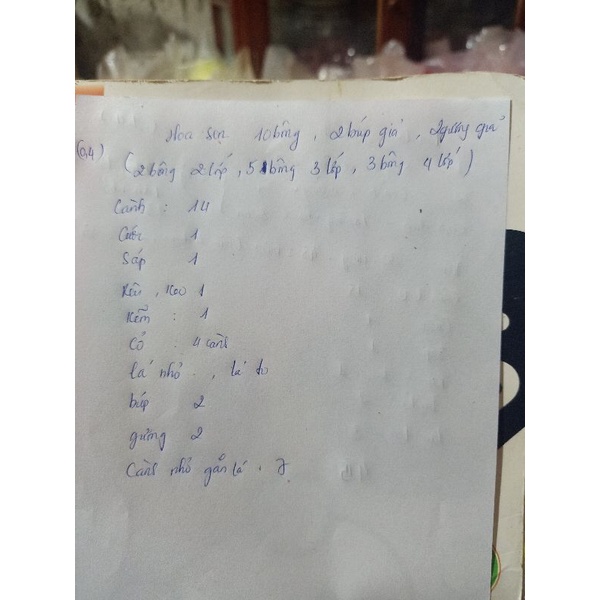 Hoa sen 10 bông, 2 búp giả, 2 gương quả
(2 bông 2 lớp, 5 bông 3 lớp, 3 bông 4 lớp)
Cành : 14
1
Sáp 1
Keo 1
Kẽm : 1
Cỏ : 4 cành
lá nhỏ , lá to
búp 2
gương 2
Cành nhỏ gắn lá : 7